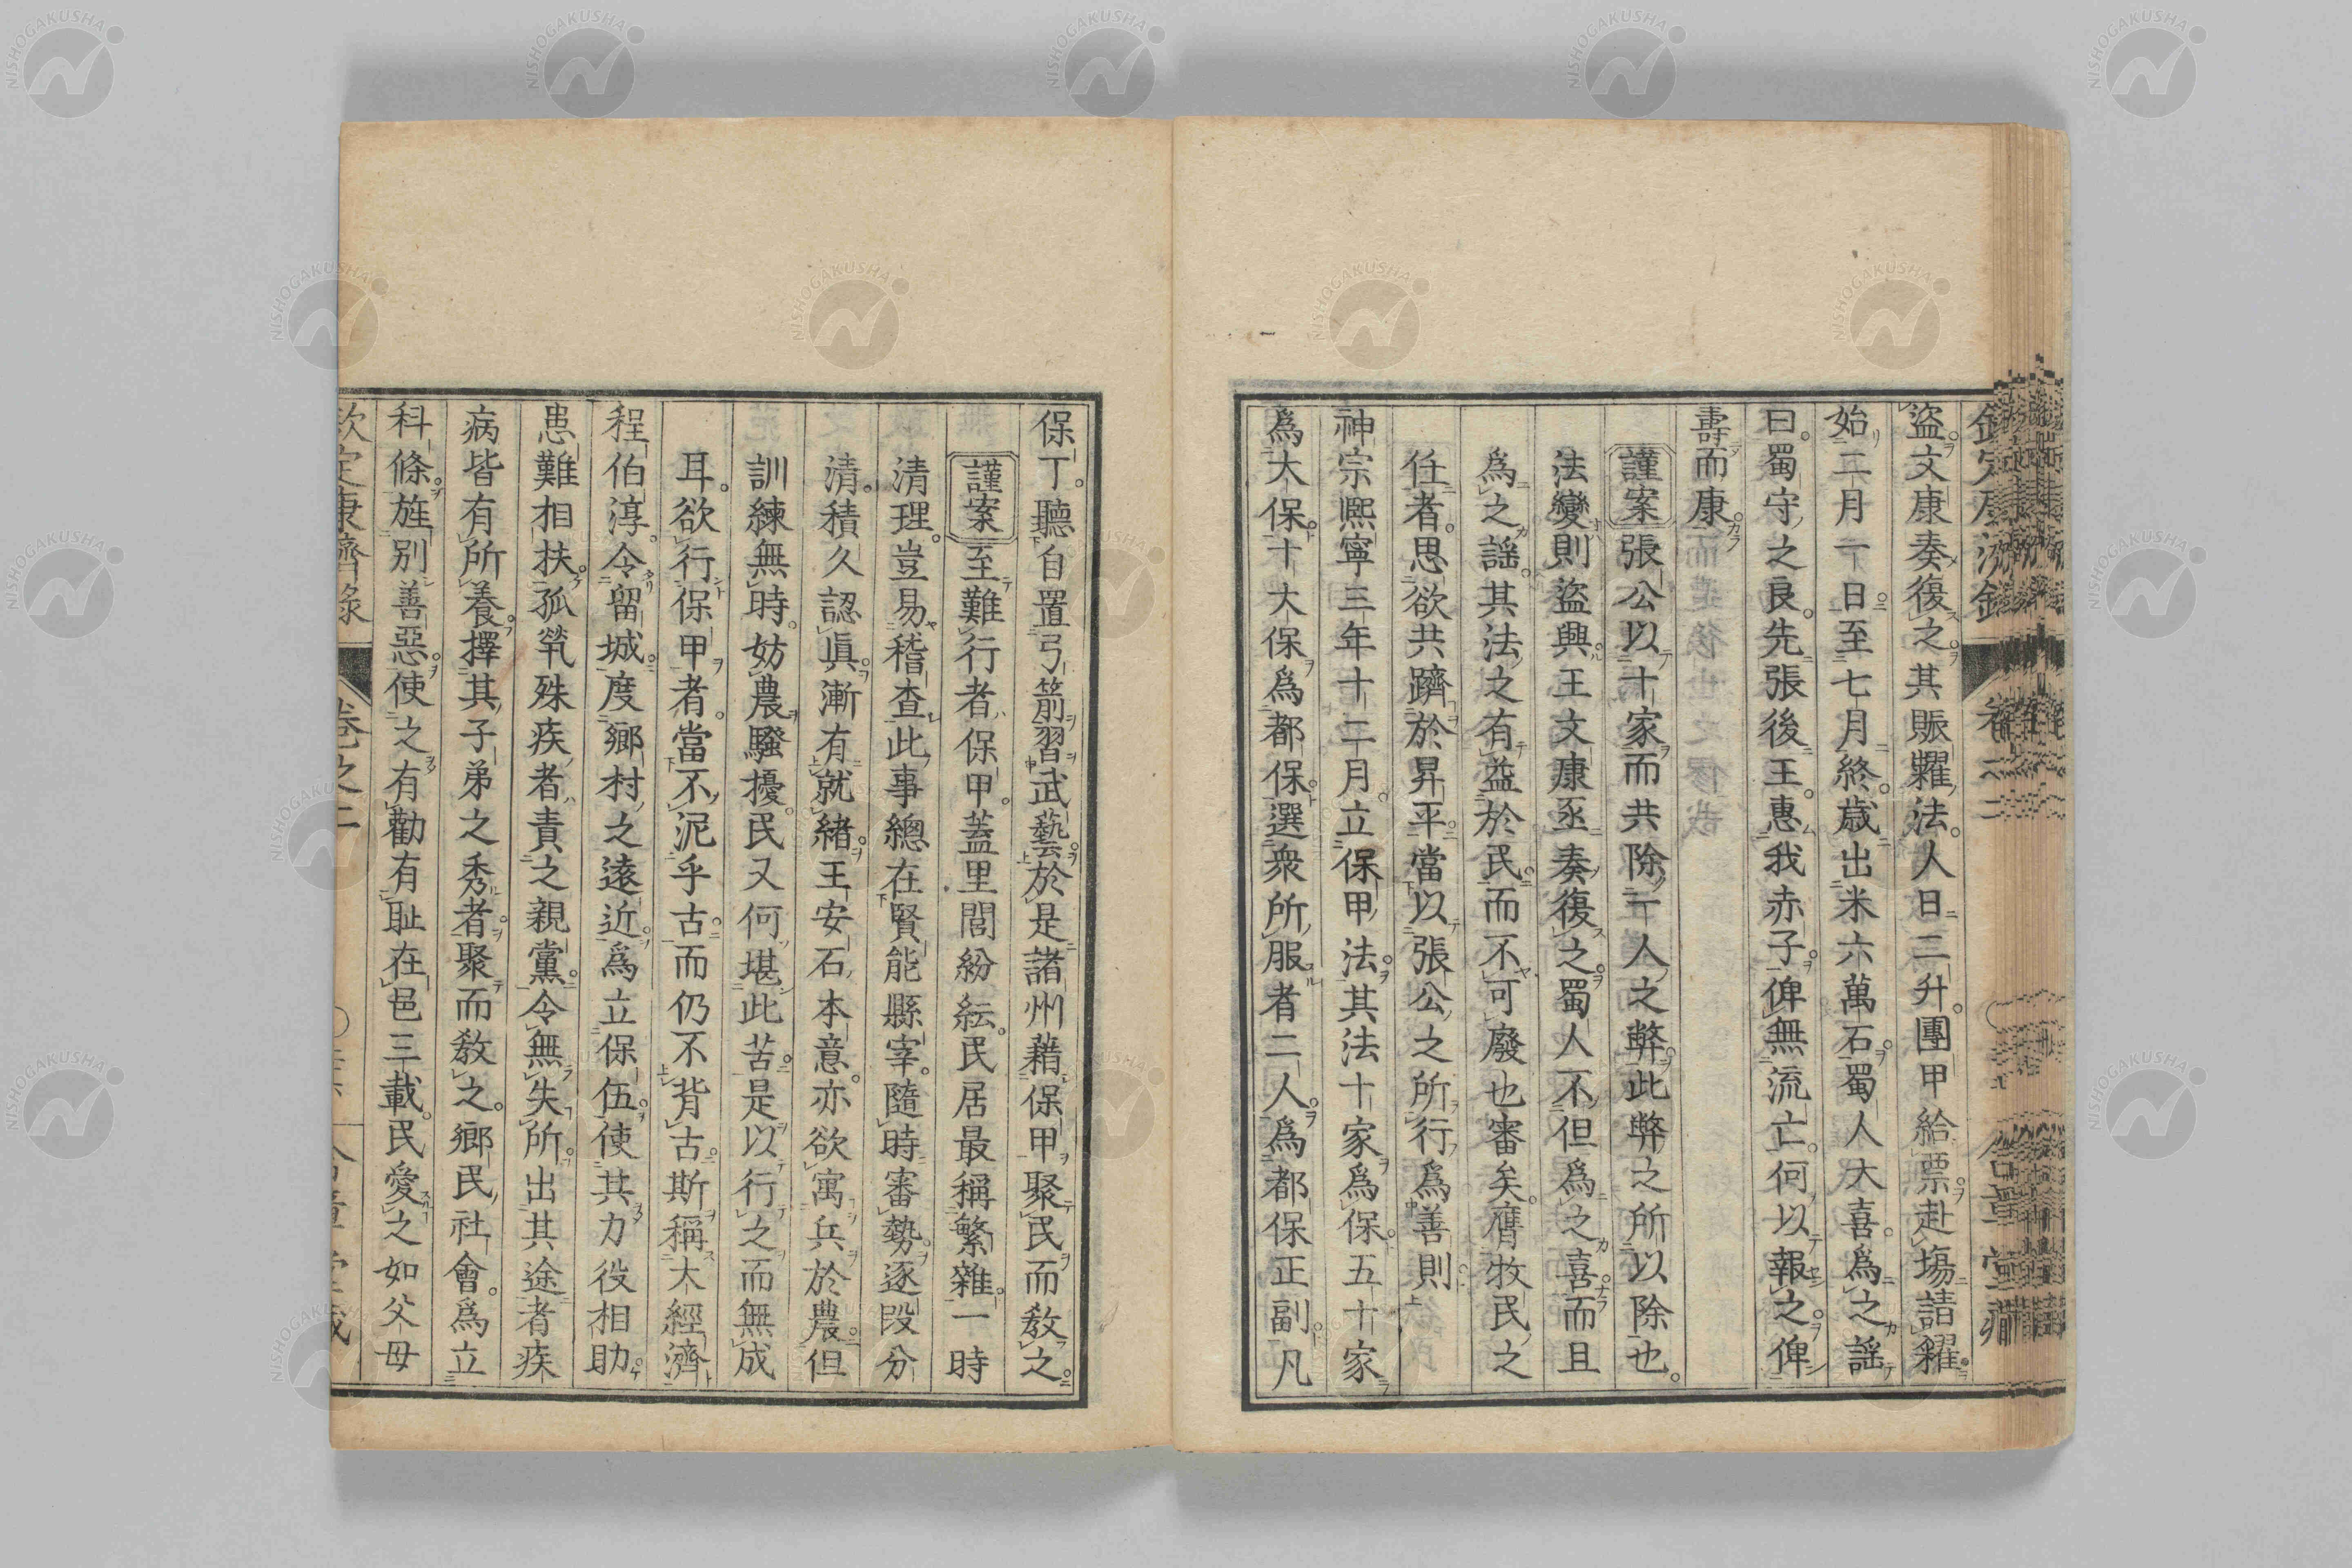 盜文康奏復之其賑糶法人日二升團甲給票赴塲請糴
始二月一日至七月終歳出米六萬石蜀人大喜爲之謡
曰蜀守之良先張後王惠我赤子俾無流亡何以報之俾
壽而康
謹案張公以十家而共除一人之弊此弊之所以除也
法變則盜興王文康亟奏復之蜀人不但爲之喜而且
爲之謡其法之有益於民而不可廢也審矣膺牧民之
任者思欲共躋於昇平當以張公之所行爲善則
神宗熙寧三年十二月立保甲法其法十家爲保五十家
爲大保十大保爲都保選衆所服者二人爲都保正副凡
保丁聽自置弓箭習武藝於是諸州藉保甲聚民而敎之
謹案至難行者保甲蓋里閭紛紜民居最稱繁雜一時
清理豈易稽查此事總在賢能縣宰隨時審勢逐段分
清積久認眞漸有就緒王安石本意亦欲寓兵於農但
訓練無時妨農騷擾民又何堪此苦是以行之而無成
耳欲行保甲者當不泥乎古而仍不背古斯稱大經濟
程伯淳令留城度鄉村之遠近爲立保伍使其力役相助
患難相扶孤煢殊疾者責之親黨令無失所出其途者疾
病皆有所養擇其子弟之秀者聚而敎之鄉民社會爲立
科條旌別善惡使之有勸有耻在邑三載民愛之如父母
欽定康濟錄 卷之二
NISHOGAKUSHA